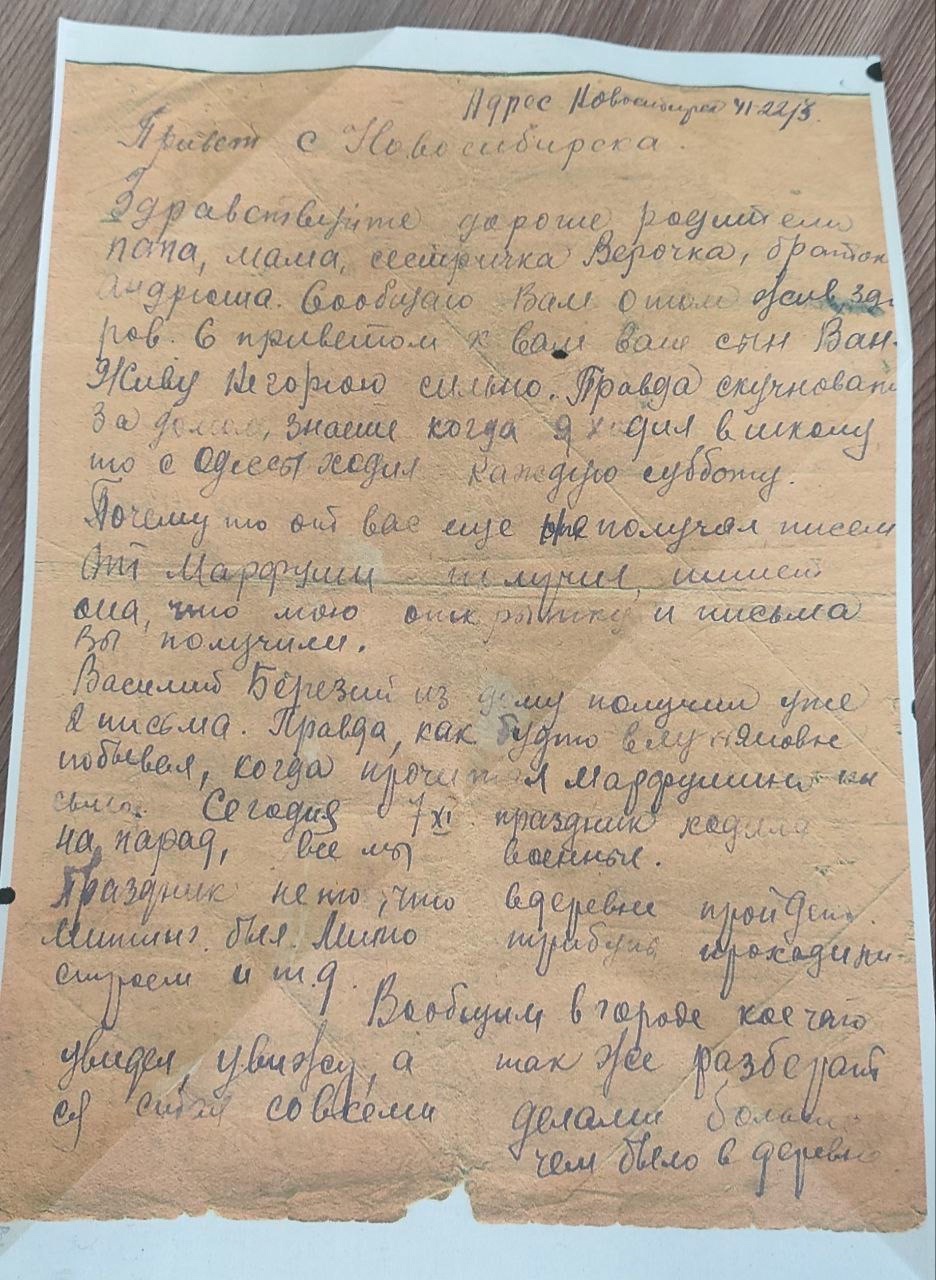 Адрес Новосибирск 41-22/3.
Привет с Новосибирска.
Здравствуйте дорогие родители
папа, мама, сестричка Верочка, браток
Андрюша. Сообщаю Вам о том жив здо
ров. С приветом к вам ваш сын Ван
Живу не горюю сильно. Правда скучноват
за домом, знаеше когда я ходил в школу
то с Одессы ходил каждую субботу.
Почему то от вас еще не получал писем
От Марфуши получил, пишет
она, что мою открытку и письма
вы получили.
Василий Березий из дому получил уже
2 письма. Правда, как будто
побывал, когда прочитал Марфушино пи
сьмо. Сегодня 7 XI праздник ходили
на парад, все мы военные.
Праздник не то, что в деревне пройдет.
Митинг был. Мимо трибуны проходили
строем и т.д.
Вообщим в городе кое чего
увидел, увижу, а так же разберат
ся стал со всеми делами больше
чем было в деревне